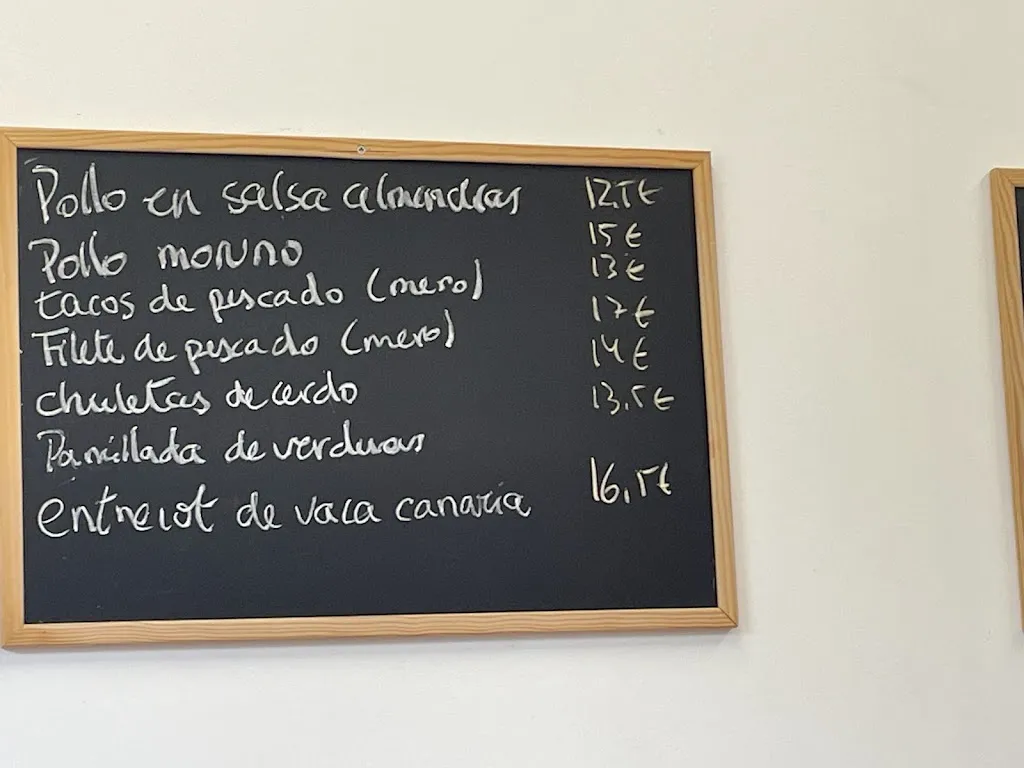 Pollo en salsa almendras 12,5€
Pollo moruno 15€
tacos de pescado (mero) 13€
Filete de pescado (mero) 17€
chuletas de cerdo 14€
Parrillada de verduras 13,5€
entrecot de vaca canaria 16,5€